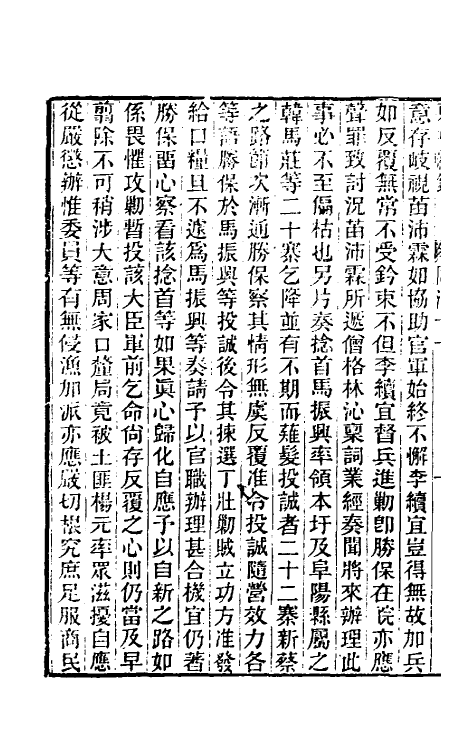 意存岐視苗沛霖如協助官軍始終不懈李續宜豈得無故加兵
如反覆無常不受鈐束不但李續宜督兵進勦卽勝保在皖亦應
聲罪致討況苗沛霖所遞僧格林沁稟詞業經奏聞將來辦理此
事必不至偏枯也另片奏捻首馬振興率領本圩及阜陽縣屬之
韓馬莊等二十寨乞降並有不期而薙髮投誠者二十二寨新蔡
之路節次漸通勝保察其情形無虞反覆准令投誠隨營效力各
等語勝保於馬振興等投誠後令其揀選丁壯勦賊立功方准發
給口糧且不遽爲馬振興等奏請予以官職辦理甚合機宜仍著
勝保留心察看該捻首等如果眞心歸化自應予以自新之路如
係畏懼攻勦暫投該大臣軍前乞命尙存反覆之心則仍當及早
翦除不可稍涉大意周家口釐局竟被土匪楊元率眾滋擾自應
從嚴懲辦惟委員等有無侵漁加派亦應嚴切根究庶足服商民